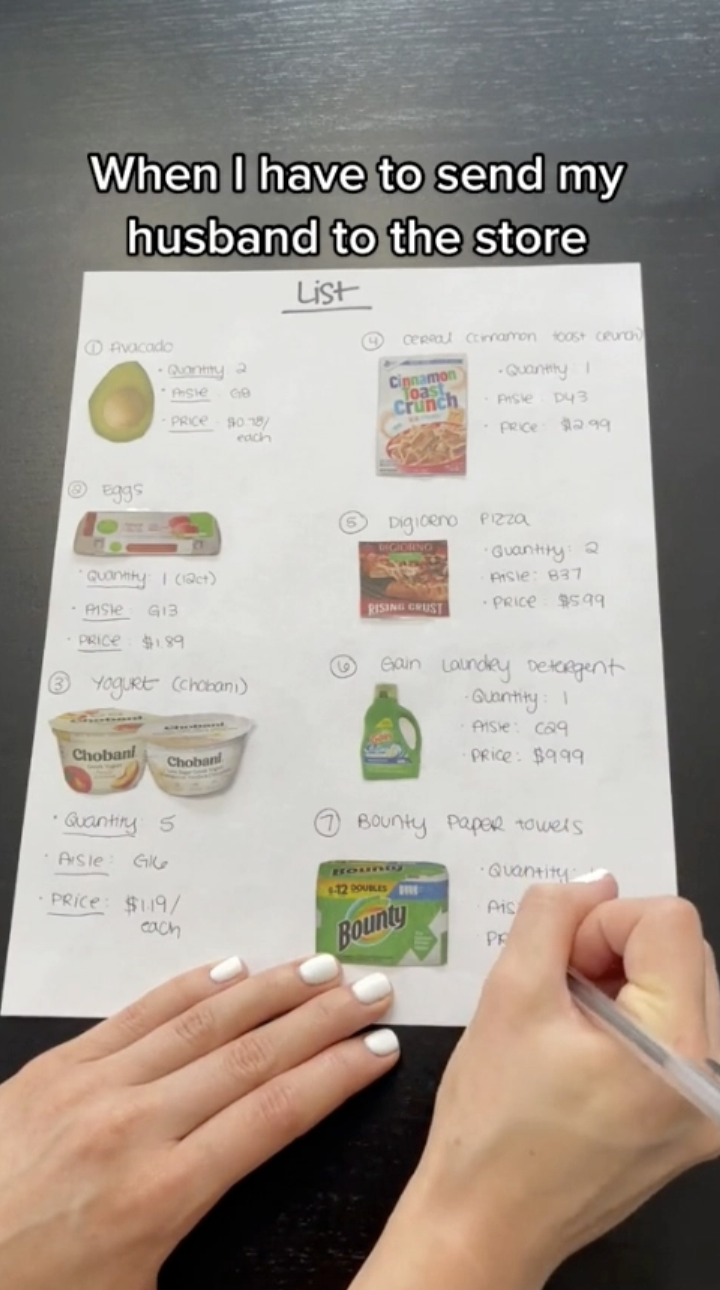 When I have to send my
husband to the store
List
① Avacado
• Quantity 2
• Aisle : G8
• PRICE : $0.78/
each
② Eggs
• Quantity: 1 (12ct)
• Aisle : G13
• PRICE : $1.89
③ Yogurt (chobani)
Chobani
Chobani
Chobani
Chobani
• Quantity: 5
• Aisle: G16
• PRICE: $1.19/
each
④ cereal (cinnamon toast crunch)
Cinnamon
Toast
Crunch
• Quantity: 1
• Aisle: D43
• PRICE: $2.99
⑤ Digiorno Pizza
DIGIORNO
RISING CRUST
• Quantity: 2
• Aisle: B37
• PRICE: $5.99
⑥ Gain Laundry Detergent
Gain
• Quantity: 1
• Aisle: C29
• PRICE: $9.99
⑦ Bounty Paper towels
Bounty
12 DOUBLES
Bounty
• Quantity: